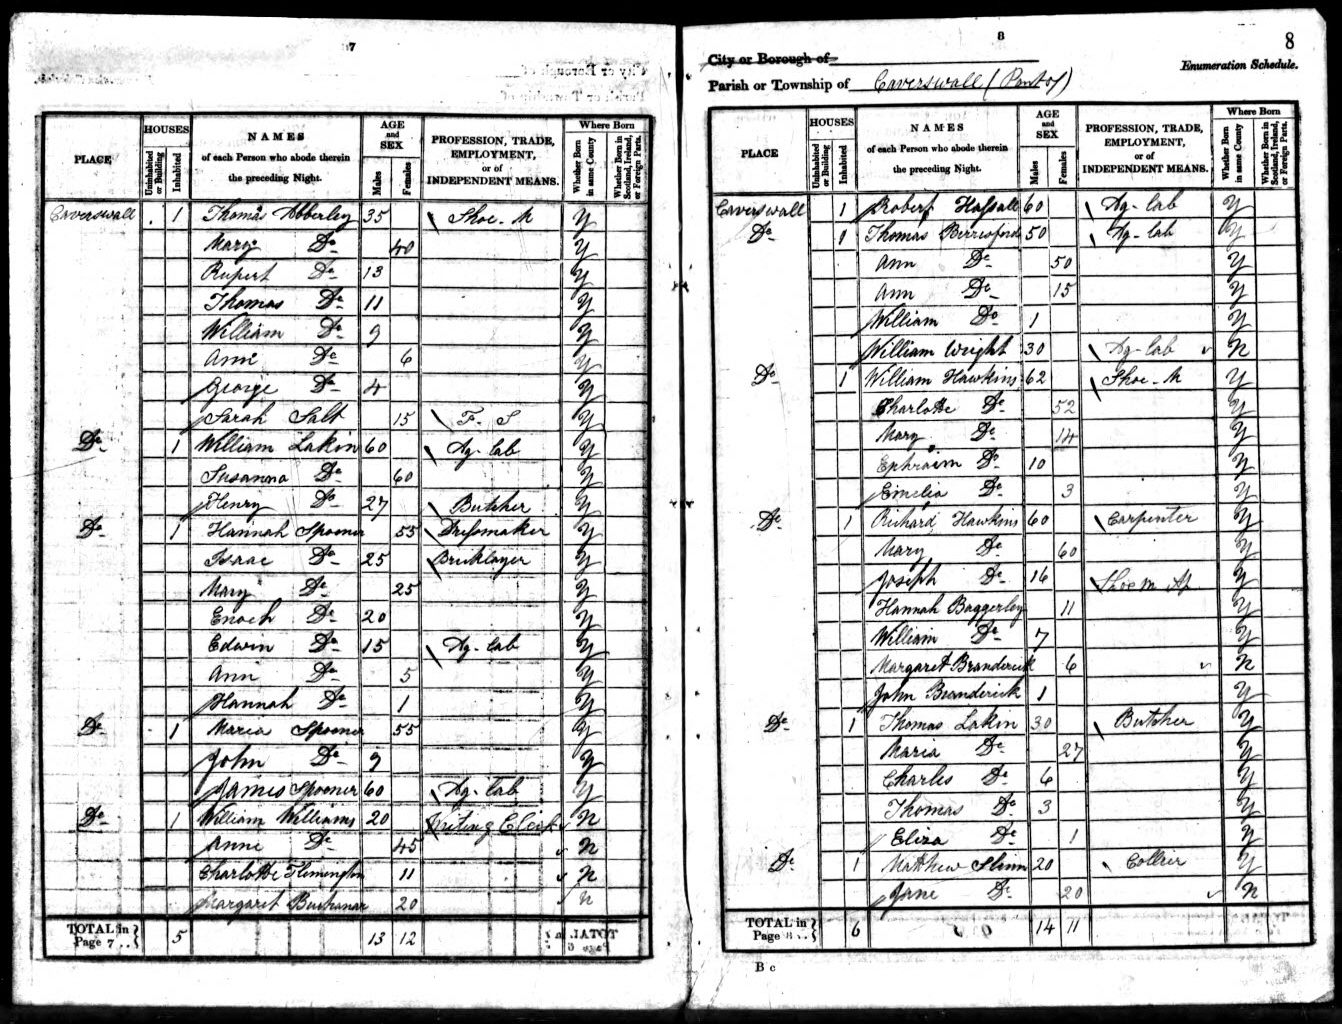 7
PLACE
HOUSES
Uninhabited or Building
Inhabited
NAMES
of each Person who abode therein
the preceding Night.
AGE and SEX
Males
Females
PROFESSION, TRADE,
EMPLOYMENT,
or of
INDEPENDENT MEANS.
Where Born
Whether Born in same County
Whether Born in Scotland, Ireland, or Foreign Parts.
Caverswall 1 Thomas Abberley 35 Shoe-M Y
Mary Do 40 Y
Rupert Do 13 Y
Thomas Do 11 Y
William Do 9 Y
Ann Do 6 Y
George Do 4 Y
Sarah Salt 15 F. S Y
Do 1 William Lakin 60 Ag-lab Y
Susanna Do 60 Y
Henry Do 27 Butcher Y
Do 1 Hannah Spooner 55 Dressmaker Y
Isaac Do 25 Bricklayer Y
Mary Do 25 Y
Enoch Do 20 Y
Edwin Do 15 Ag-lab Y
Ann Do 5 Y
Hannah Do 1 Y
Do 1 Maria Spooner 55 Y
John Do 9 Y
James Spooner 60 Ag-lab Y
Do 1 William Williams 20 Writing Clerk N
Anne Do 45 N
Charlotte Flemington 11 N
Margaret Buchanan 20 N
TOTAL in Page 7 5 13 12
8
8
City or Borough of
Enumeration Schedule.
Parish or Township of Caverswall (Part of)
PLACE
HOUSES
Uninhabited or Building
Inhabited
NAMES
of each Person who abode therein
the preceding Night.
AGE and SEX
Males
Females
PROFESSION, TRADE,
EMPLOYMENT,
or of
INDEPENDENT MEANS.
Where Born
Whether Born in same County
Whether Born in Scotland, Ireland, or Foreign Parts.
Caverswall 1 Robert Hassall 60 Ag-lab Y
Do 1 Thomas Berresford 50 Ag-lab Y
Ann Do 50 Y
Ann Do 15 Y
William Do 1 Y
William Wright 30 Ag-lab N
Do 1 William Hawkins 62 Shoe-M Y
Charlotte Do 52 Y
Mary Do 14 Y
Ephraim Do 10 Y
Emelia Do 3 Y
Do 1 Richard Hawkins 60 Carpenter Y
Mary Do 60 Y
Joseph Do 16 Shoe M Ap Y
Hannah Baggerley 11 Y
William Do 7 Y
Margaret Branderick 6 N
John Branderick 1 Y
Do 1 Thomas Lakin 30 Butcher Y
Maria Do 27 Y
Charles Do 6 Y
Thomas Do 3 Y
Eliza Do 1 Y
Do 1 Matthew 20 Collier Y
Jane Do 20 N
TOTAL in Page 8 6 14 11
B c